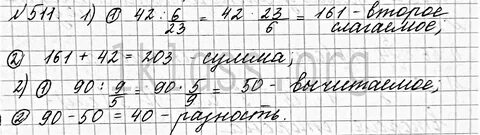 №511. 1) ① 42 : 6/23 = 42 · 23/6 = 161 - второе слагаемое;
② 161 + 42 = 203 - сумма;
2) ① 90 : 9/5 = 90 · 5/9 = 50 - вычитаемое;
② 90 - 50 = 40 - разность.